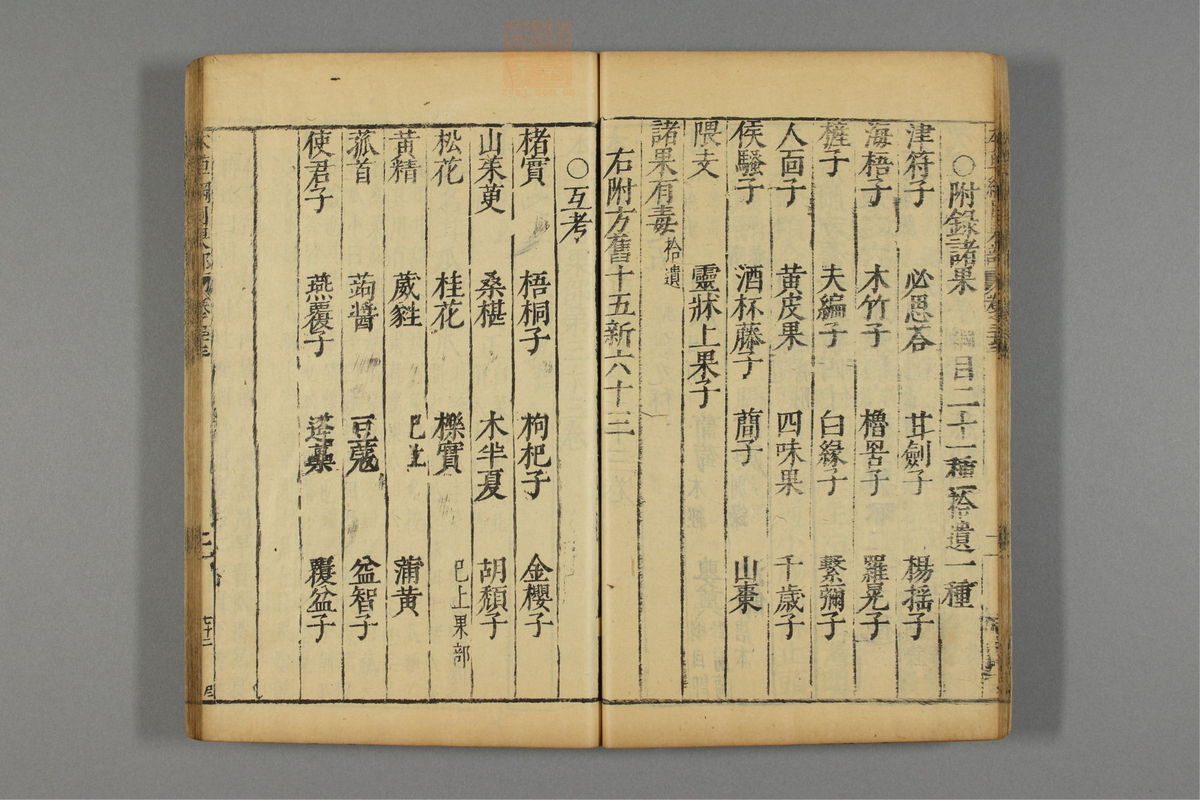 ○附錄諸果 綱目二十一種拾遺一種
津符子 必思荅 甘劍子 楊搖子
海梧子 木竹子 櫓罟子 羅晃子
㮋子 夫編子 白緣子 繫彌子
人面子 黃皮果 四味果 千歲子
侯騷子 酒杯藤子 蕳子 山棗
隈支 靈牀上果子
諸果有毒 拾遺
右附方舊十五新六十三
○互考
楮實 梧桐子 枸杞子 金櫻子
山茱萸 桑椹 木半夏 胡頹子
松花 桂花 櫟實 巳上果部
黃精 葳蕤 蒲黃
菰首 蒟醬 豆蔻 益智子
使君子 燕覆子 蓬虆 覆盆子